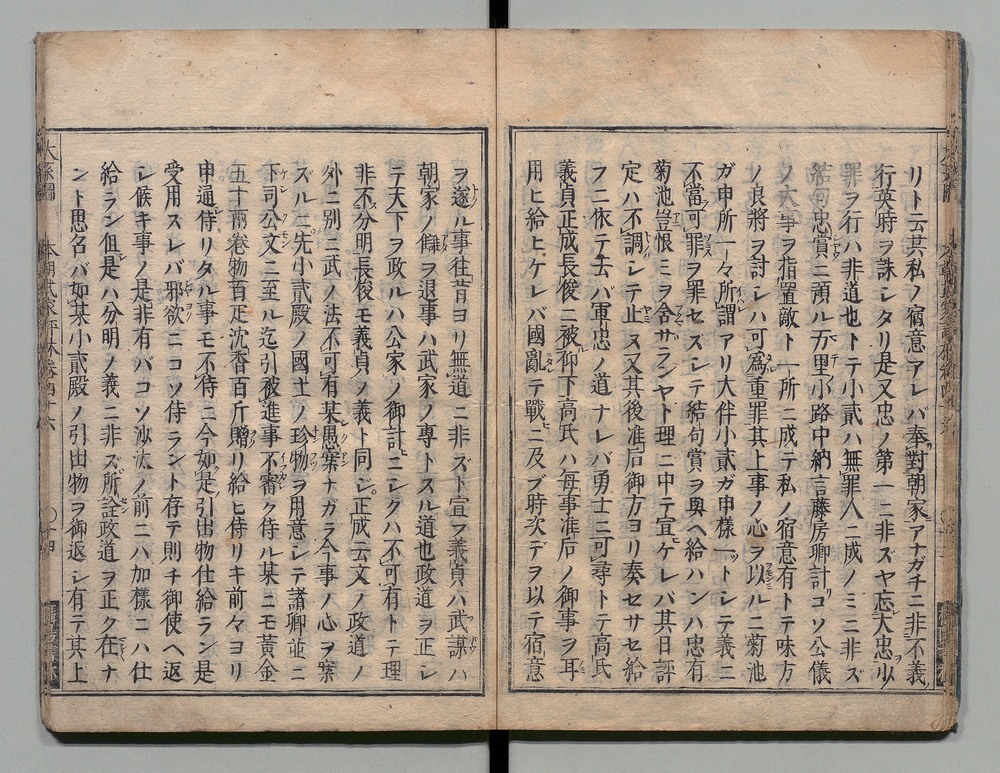 アリト云其私ノ宿意アレバ奉對朝家アナガチニ非不義
行英時ヲ誅シタリ是又忠ノ第一ニ非ズヤ忘大忠少
罪ヲ行ハ非道也トテ小貳ハ無罪人ニ成ノミニ非ズ
結句忠賞ニ預ル万里小路中納言藤房卿計コソ公儀
ノ大事ヲ指置敵ト一所ニ成テ私ノ宿意有トテ味方
ノ良將ヲ討シハ可為重罪其上事ノ心ヲ以ルニ菊池
ガ申所一々所謂アリ大伴小貳ガ申樣一ツトシテ義ニ
不當可罪ヲ罪セズシテ結句賞ヲ與ヘ給ハンハ忠有
菊池豈恨ミヲ含サランヤト理ニ中テ宣ケレバ其日評
定ハ不調シテ止ヌ又其後准后御方ヨリ奏セサセ給
フニ依テ去バ軍忠ノ道ナレバ勇士ニ可尋トテ高氏
義貞正成長俊ニ被仰下高氏ハ毎事准后ノ御事ヲ耳
用ヒ給ヒケレバ國亂テ戰ニ及ブ時次デヲ以テ宿意
ヲ遂ル事往昔ヨリ無道ニ非ズト宣フ義貞ハ武謀ハ
朝家ノ讎ヲ退事ハ武家ノ専トスル道也政道ヲ正シ
テ天下ヲ政ルハ公家ノ御計ニシクハ不可有トテ理
非不分明長俊モ義貞ノ義ト同シ正成云文ノ政道ノ
外ニ別ニ武ノ法不可有某愚案ナガラ今事ノ心ヲ案
ズルニ先小貳殿ノ國土ノ珍物ヲ用意シテ諸卿並ニ
下司公文ニ至ル迄引被進事不審ク侍ル某ニモ黃金
五十兩巻物百疋沈香百斤贈リ給ヒ侍リキ前々ヨリ
申通侍リタル事モ不侍ニ今如是引出物仕給ラン是
受用スレバ邪欲ニコソ侍ラント存テ則チ御使ヘ返
シ候キ事ノ是非有バコソ沙汰ノ前ニハ加樣ニハ仕
給ラン但是ハ分明ノ義ニ非ズ所詮政道ヲ正ク在ナ
ント思召バ如某小貳殿ノ引出物ヲ御返シ有テ其上